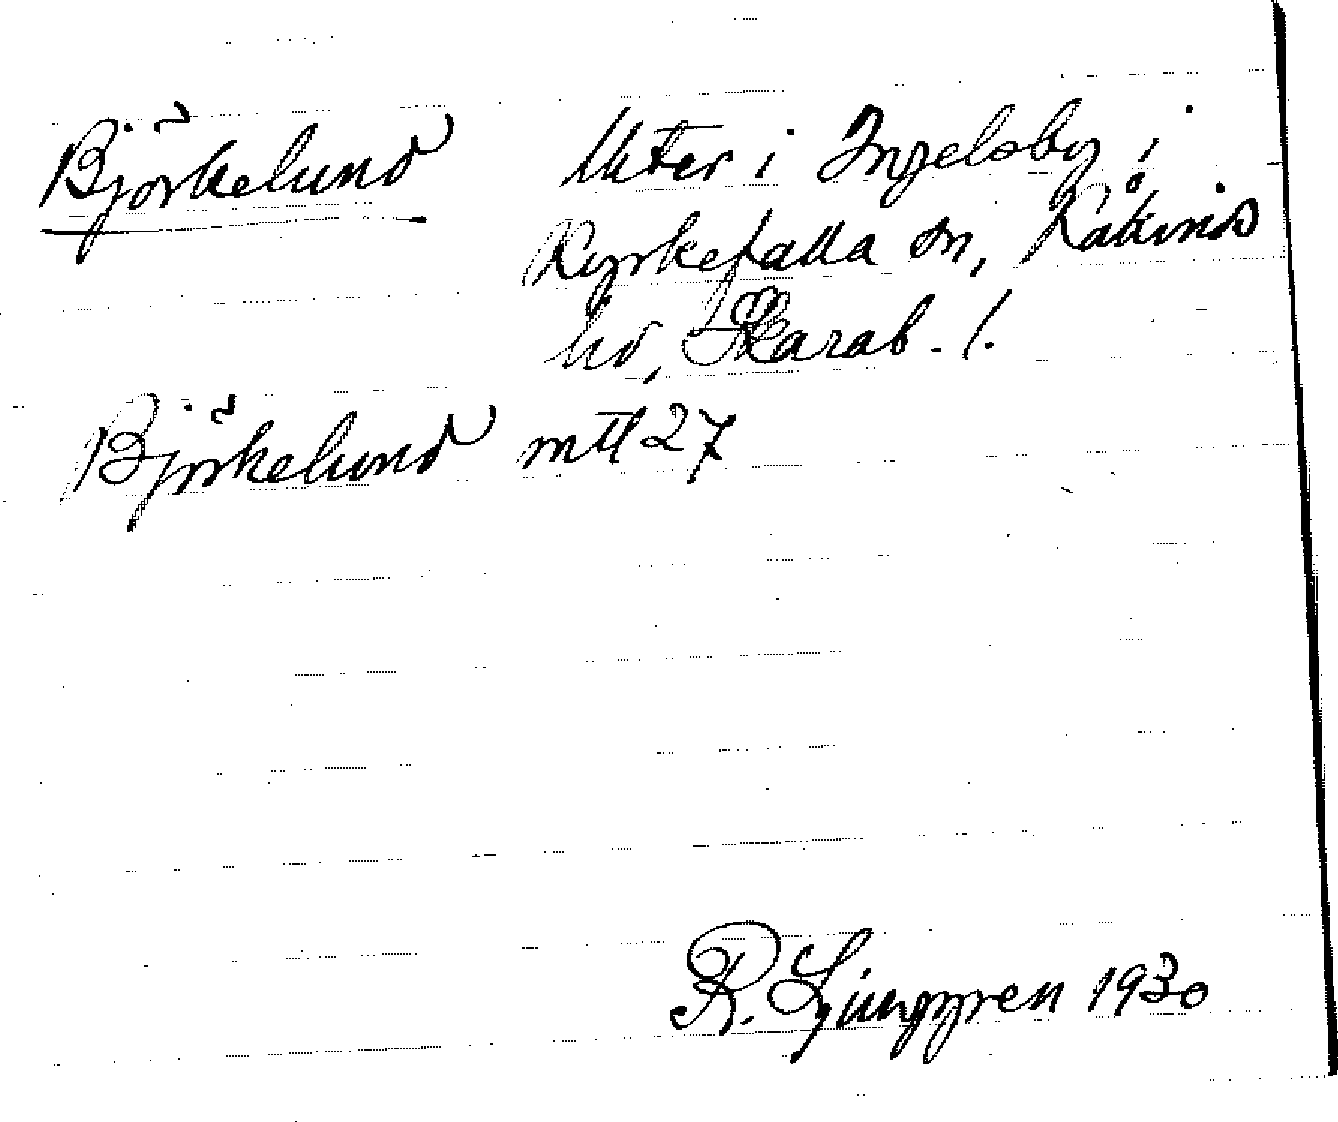 Björkelund Uter i Ingelsby i
Kyrkefalla sn, Kåkinds
hd, Skarab. l.
Björkelund mtl 27
R. Ljunggren 1930